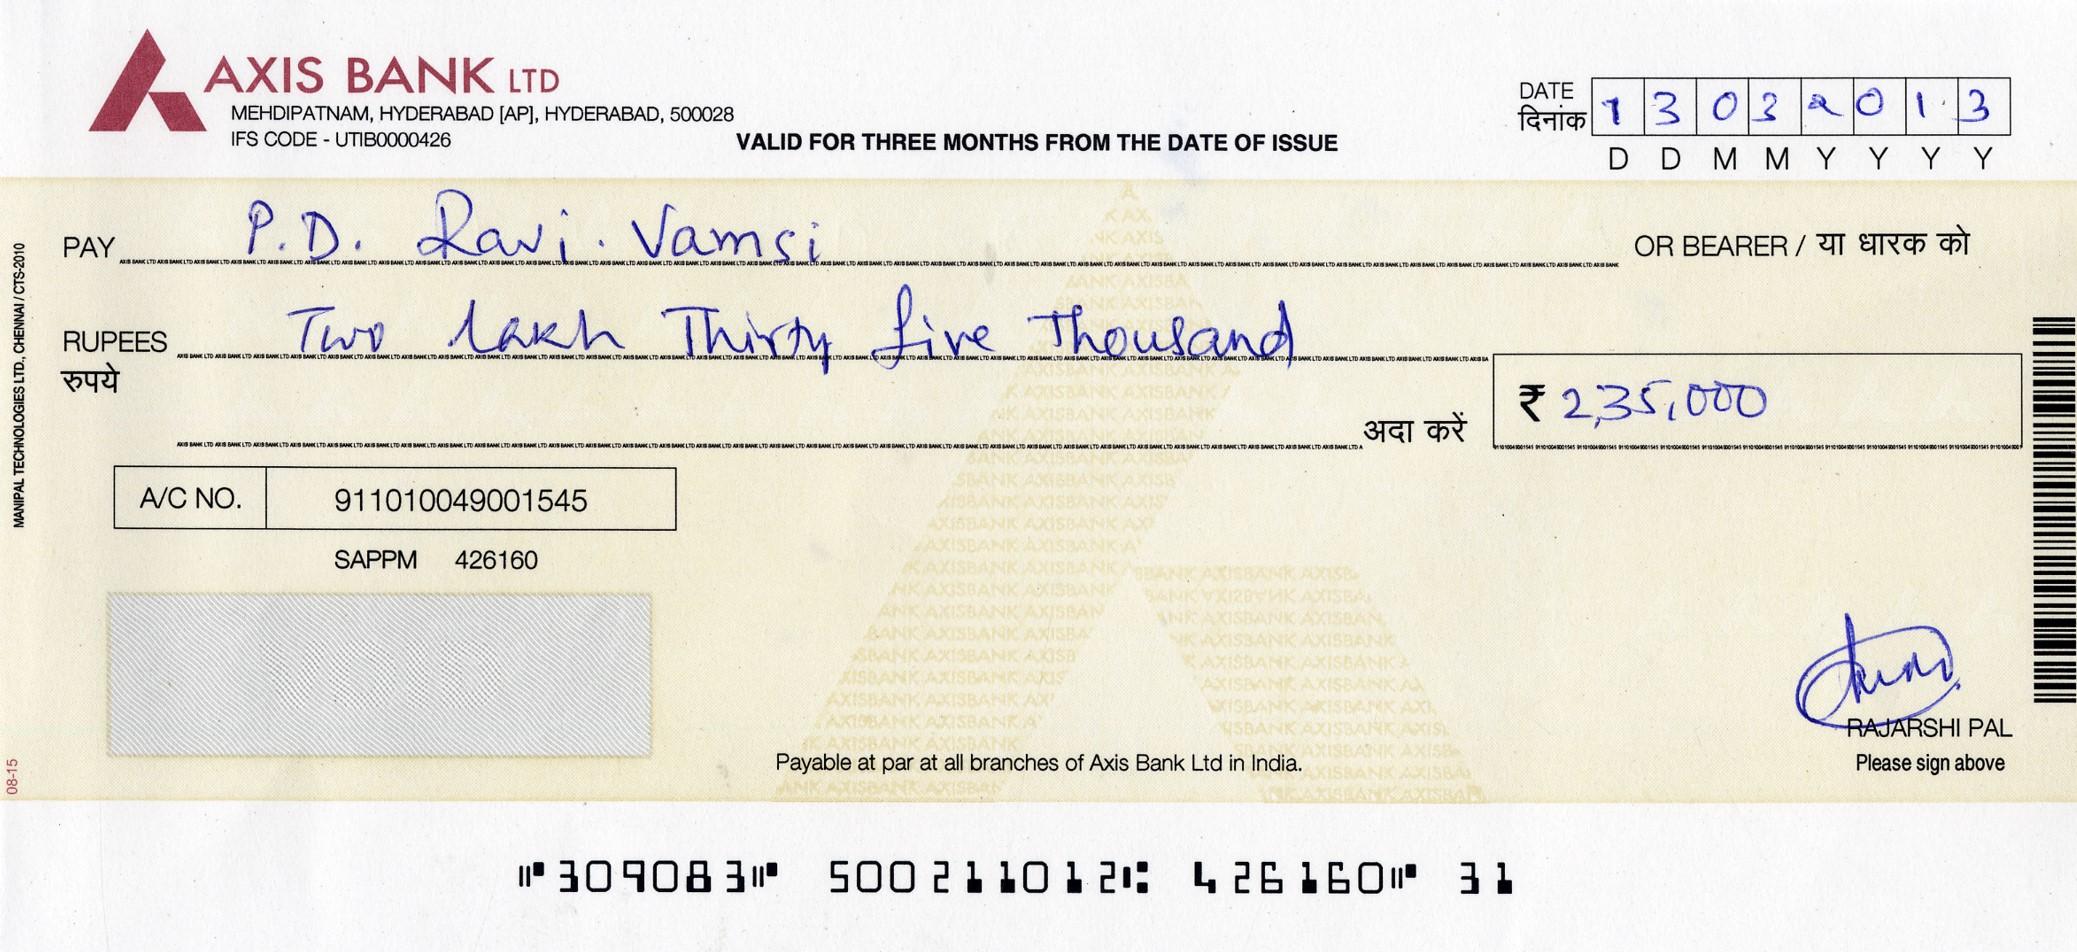 AXIS BANK LTD
MEHDIPATNAM, HYDERABAD [AP], HYDERABAD, 500028
IFS CODE - UTIB0000426
VALID FOR THREE MONTHS FROM THE DATE OF ISSUE
DATE
दिनांक 1 3 0 3 2 0 1 3
D D M M Y Y Y Y
PAY P.D. Ravi. Vamsi OR BEARER / या धारक को
RUPEES Two lakh Thirty five Thousand
रुपये
अदा करें ₹ 2,35,000
A/C NO. 911010049001545
SAPPM 426160
RAJARSHI PAL
Payable at par at all branches of Axis Bank Ltd in India.
Please sign above
MANIPAL TECHNOLOGIES LTD., CHENNAI / CTS-2010
08-15
⑈309083⑈ 500211012⑆ 426160⑈ 31